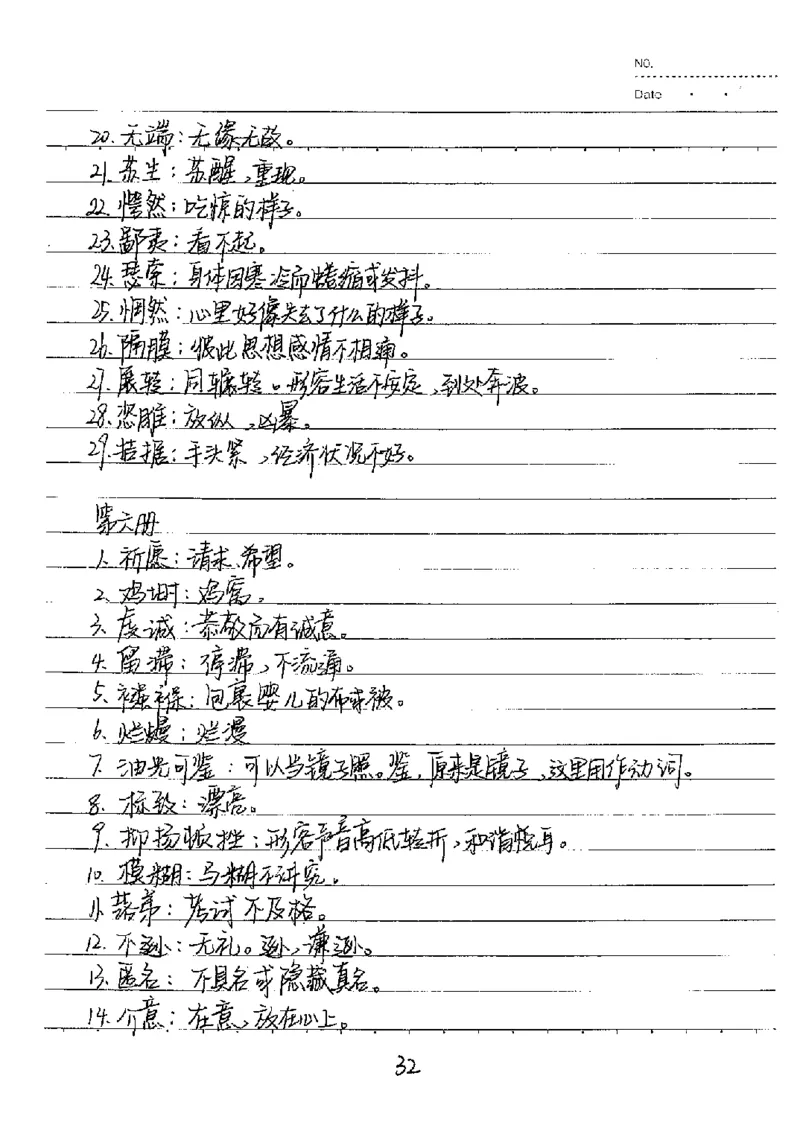 NO.
Date
20. 无端：无缘无故。
21. 苏生：苏醒，重现。
22. 愕然：吃惊的样子。
23. 鄙夷：看不起。
24. 瑟索：身体因寒冷而蜷缩或发抖。
25. 惘然：心里好像失去了什么的样子。
26. 隔膜：彼此思想感情不相通。
27. 展转：同辗转。形容生活不安定，到处奔波。
28. 恣睢：放纵，凶暴。
29. 拮据：手头紧，经济状况不好。
第六册
1. 祈愿：请求、希望。
2. 鸡埘：鸡窝。
3. 虔诚：恭敬而有诚意。
4. 留滞：停滞，不流通。
5. 襁褓：包裹婴儿的布或被。
6. 烂熳：烂漫
7. 油光可鉴：可以当镜子照。鉴，原来是镜子，这里用作动词。
8. 标致：漂亮。
9. 抑扬顿挫：形容声音高低转折，和谐悦耳。
10. 模糊：马糊不讲究。
11. 落第：考试不及格。
12. 不逊：无礼。逊，谦逊。
13. 匿名：不具名或隐藏真名。
14. 介意：在意，放在心上。
32